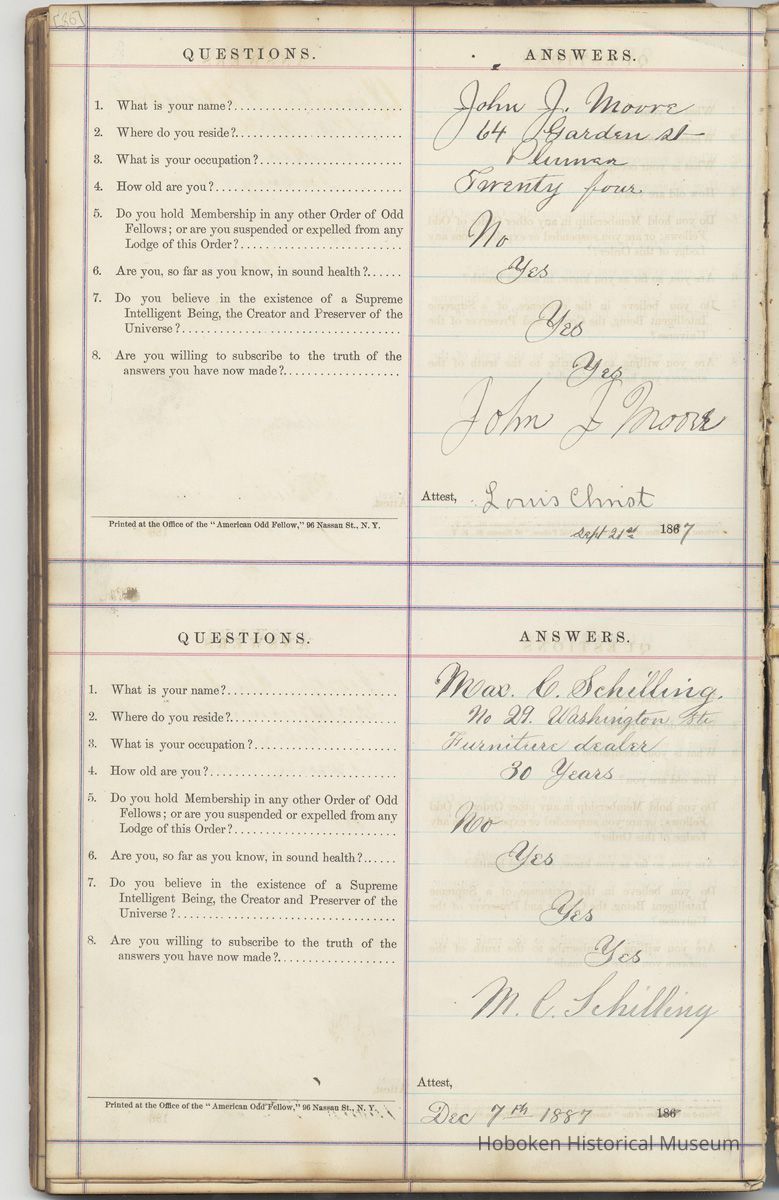 [86]
QUESTIONS. ANSWERS.
1. What is your name?........................ John J. Moore
2. Where do you reside?........................ 64 Garden st
3. What is your occupation?........................ Plummer
4. How old are you?........................ Twenty four.
5. Do you hold Membership in any other Order of Odd
Fellows; or are you suspended or expelled from any
Lodge of this Order?........................ No
6. Are you, so far as you know, in sound health?...... Yes
7. Do you believe in the existence of a Supreme
Intelligent Being, the Creator and Preserver of the
Universe?........................ Yes
8. Are you willing to subscribe to the truth of the
answers you have now made?................ Yes
John J Moore
Attest, Louis Christ
Printed at the Office of the "American Odd Fellow," 96 Nassau St., N. Y.
Sept 21st 1867
QUESTIONS. ANSWERS.
1. What is your name?........................ Max. C. Schilling.
2. Where do you reside?........................ No 29. Washington Str
3. What is your occupation?........................ Furniture dealer
4. How old are you?........................ 30 Years
5. Do you hold Membership in any other Order of Odd
Fellows; or are you suspended or expelled from any
Lodge of this Order?........................ No
6. Are you, so far as you know, in sound health?...... Yes
7. Do you believe in the existence of a Supreme
Intelligent Being, the Creator and Preserver of the
Universe?........................ Yes
8. Are you willing to subscribe to the truth of the
answers you have now made?................ Yes
M. C. Schilling
Attest,
Printed at the Office of the "American Odd Fellow," 96 Nassau St., N. Y.
Dec 7th 1887 186
Hoboken Historical Museum